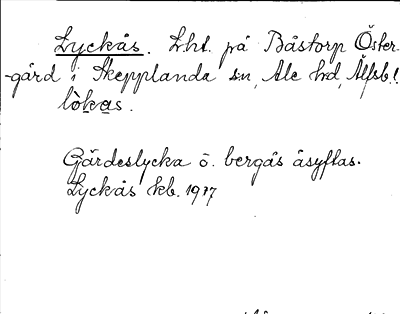 Lyckås. Lht. på Båstorp Öster-
-gård i Skepplanda sn, Ale hd, Älfsb.l.
lòkas.
Gärdeslycka o. bergås åsyftas.
Lyckås kb. 1917